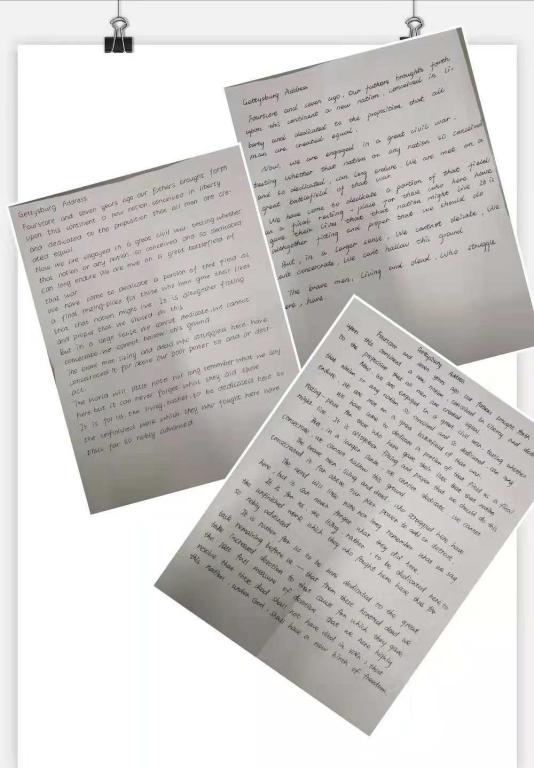 Gettysburg Address
Fourscore and seven years ago our fathers brought forth
upon this continent a new nation conceived in liberty
and dedicated to the proposition that all men are cre-
ated equal.
Now we are engaged in a great civil war testing whether
that nation or any nation so conceived and so dedicated
can long endure We are met on a great battlefield of
that war
We have come to dedicate a portion of that field as
a final resting-place for those who here gave their lives
that that nation might live. It is altogether fitting
and proper that we should do this
But in a large sense we cannot dedicate, we cannot
consecrate we cannot hallow this ground
The brave men living and dead who struggled here have
consecrated it far above our poor power to
act.
The world will little note not long remember what we say
here but it can never forget what they did here
It is for us the living rather to be dedicated here to
the unfinished work which they who fought here have
far so nobly advanced
Gettysburg Address
Fourscore and seven ago, Our fathers broughts forth
upon this continent a new nation, conceived in Li-
berty and dedicated to the proposition that all
man are created equal.
Now, we are engaged in a great civil war.
testing whether that nation or any nation so conceived
and so dedicated, can long endure. We are met on a
great battlefield of that war
We have come to dedicate a portion of that field,
as a final resting place for those who here have
gave their lives that that nation might live. It is
altogether fitting and proper that we should do
But, in a longer sense, We cannot dedicate, We
consecrate, We hallow this ground
The brave men, Living and dead, Who struggle
here, have.
Gettysburg Address
Fourscore and seven years ago our fathers brought forth
upon this continent a new nation conceived in liberty and
to the proposition that all men are created equal
Now we are engaged in a great civil war testing whether
that nation or any nation so conceived and so dedicated can long
endure, we are met on a great battlefield of that war.
We have come to dedicate a portion of that field as a final
resting place for those who here gave their lives that that nation
might live. It is altogether fitting and proper that we should do this
But in a larger sense we cannot dedicate, we cannot
consecrate, we cannot hallow this ground
The brave men, living and dead, who struggled here, have
consecrated it far above our poor power to add or
The world will little note nor long remember what we say
here, but it can never forget what they did here.
It is for us the living rather, to be dedicated here to
the unfinished work which they who fought here have thus far
so nobly advanced
It is rather for us to be here dedicated to the great
task remaining before us — that from these honored dead we
take increased devotion to that cause for which they gave
the last full measure of devotion that we here highly
resolve that these dead shall not have died in vain, that
this nation, under God, shall have a new birth of freedom